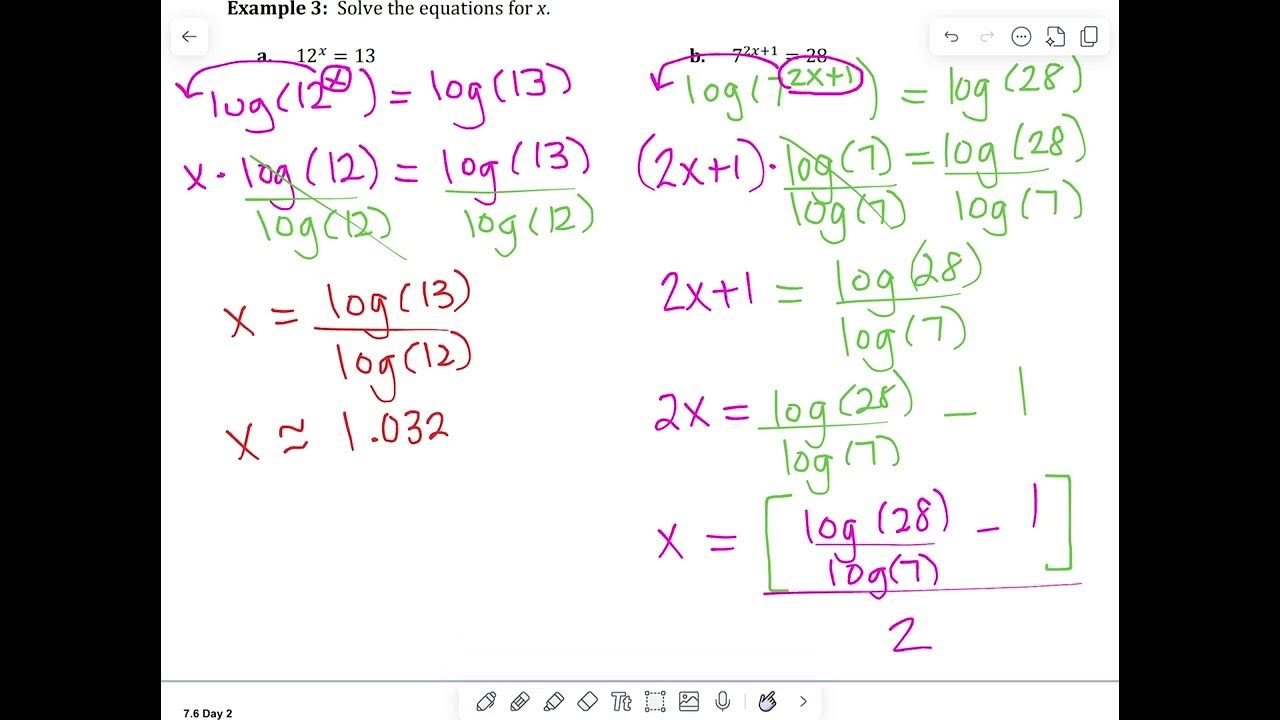 Example 3: Solve the equations for x.
a. 12^x = 13
log(12^x) = log(13)
x · log(12) / log(12) = log(13) / log(12)
x = log(13) / log(12)
x ≈ 1.032
b. 7^{2x+1} = 28
log(7^{2x+1}) = log(28)
(2x+1) · log(7) / log(7) = log(28) / log(7)
2x+1 = log(28) / log(7)
2x = log(28) / log(7) − 1
x = [log(28) / log(7) − 1] / 2
7.6 Day 2
Tt